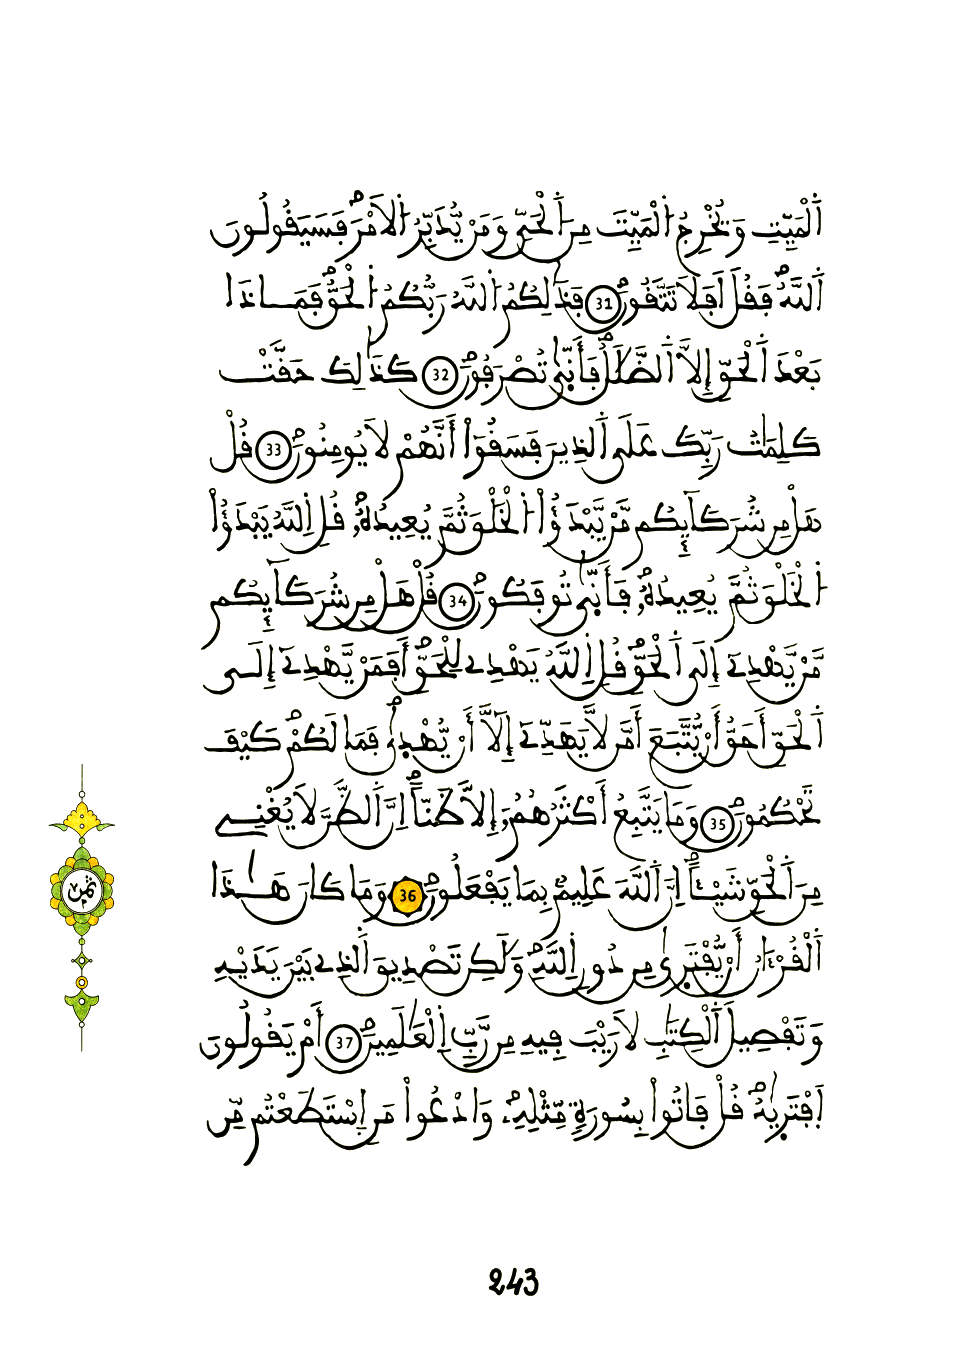 اَ۬لْمَيِّتِ وَيُخْرِجُ اُ۬لْمَيِّتَ مِنَ اَ۬لْحَيِّ وَمَنْ يُّدَبِّرُ اُ۬لَامْرَۖ فَسَيَقُولُونَ
اَ۬للَّهُۖ فَقُلَ اَفَلَا تَتَّقُونَۖ 31 فَذَٰلِكُمُ اُ۬للَّهُ رَبُّكُمُ اُ۬لْحَقُّۖ فَمَاذَا
بَعْدَ اَ۬لْحَقِّ إِلَّا اَ۬لضَّلَٰلُۖ فَأَنّ۪يٰ تُصْرَفُونَۖ 32 كَذَٰلِكَ حَقَّتْ
كَلِمَٰتُ رَبِّكَ عَلَى اَ۬لذِينَ فَسَقُوٓاْ أَنَّهُمْ لَا يُومِنُونَۖ 33 قُلْ
هَلْ مِن شُرَكَآئِكُم مَّنْ يَّبْدَؤُاْ اُ۬لْخَلْقَ ثُمَّ يُعِيدُهُۥۖ قُلِ اِ۬للَّهُ يَبْدَؤُاْ
اُ۬لْخَلْقَ ثُمَّ يُعِيدُهُۥۖ فَأَنّ۪يٰ تُوفَكُونَۖ 34 قُلْ هَلْ مِن شُرَكَآئِكُم
مَّنْ يَّهْدِےٓ إِلَى اَ۬لْحَقِّۖ قُلِ اِ۬للَّهُ يَهْدِے لِلْحَقِّۖ أَفَمَنْ يَّهْدِےٓ إِلَى
اَ۬لْحَقِّ أَحَقُّ أَنْ يُّتَّبَعَ أَمَّن لَّا يَهَدِّےٓ إِلَّآ أَنْ يُّهْد۪يٰۖ فَمَا لَكُمْۖ كَيْفَ
تَحْكُمُونَۖ 35 وَمَا يَتَّبِعُ أَكْثَرُهُمُۥٓ إِلَّا ظَنّاًۖ اِنَّ اَ۬لظَّنَّ لَا يُغْنِے
مِنَ اَ۬لْحَقِّ شَيْـٔاًۖ اِنَّ اَ۬للَّهَ عَلِيمُۢ بِمَا يَفْعَلُونَۖ 36 وَمَا كَانَ هَٰذَا
اَ۬لْقُرْءَانُ أَنْ يُّفْتَر۪يٰ مِن دُونِ اِ۬للَّهِۖ وَلَٰكِن تَصْدِيقَ اَ۬لذِے بَيْنَ يَدَيْهِ
وَتَفْصِيلَ اَ۬لْكِتَٰبِ لَا رَيْبَ فِيهِ مِن رَّبِّ اِ۬لْعَٰلَمِينَۖ 37 أَمْ يَقُولُونَ
اَ۪فْتَر۪يٰهُۖ قُلْ فَاتُواْ بِسُورَةٖ مِّثْلِهِۦ وَادْعُواْ مَنِ اِ۪سْتَطَعْتُم مِّن
ثمن
243